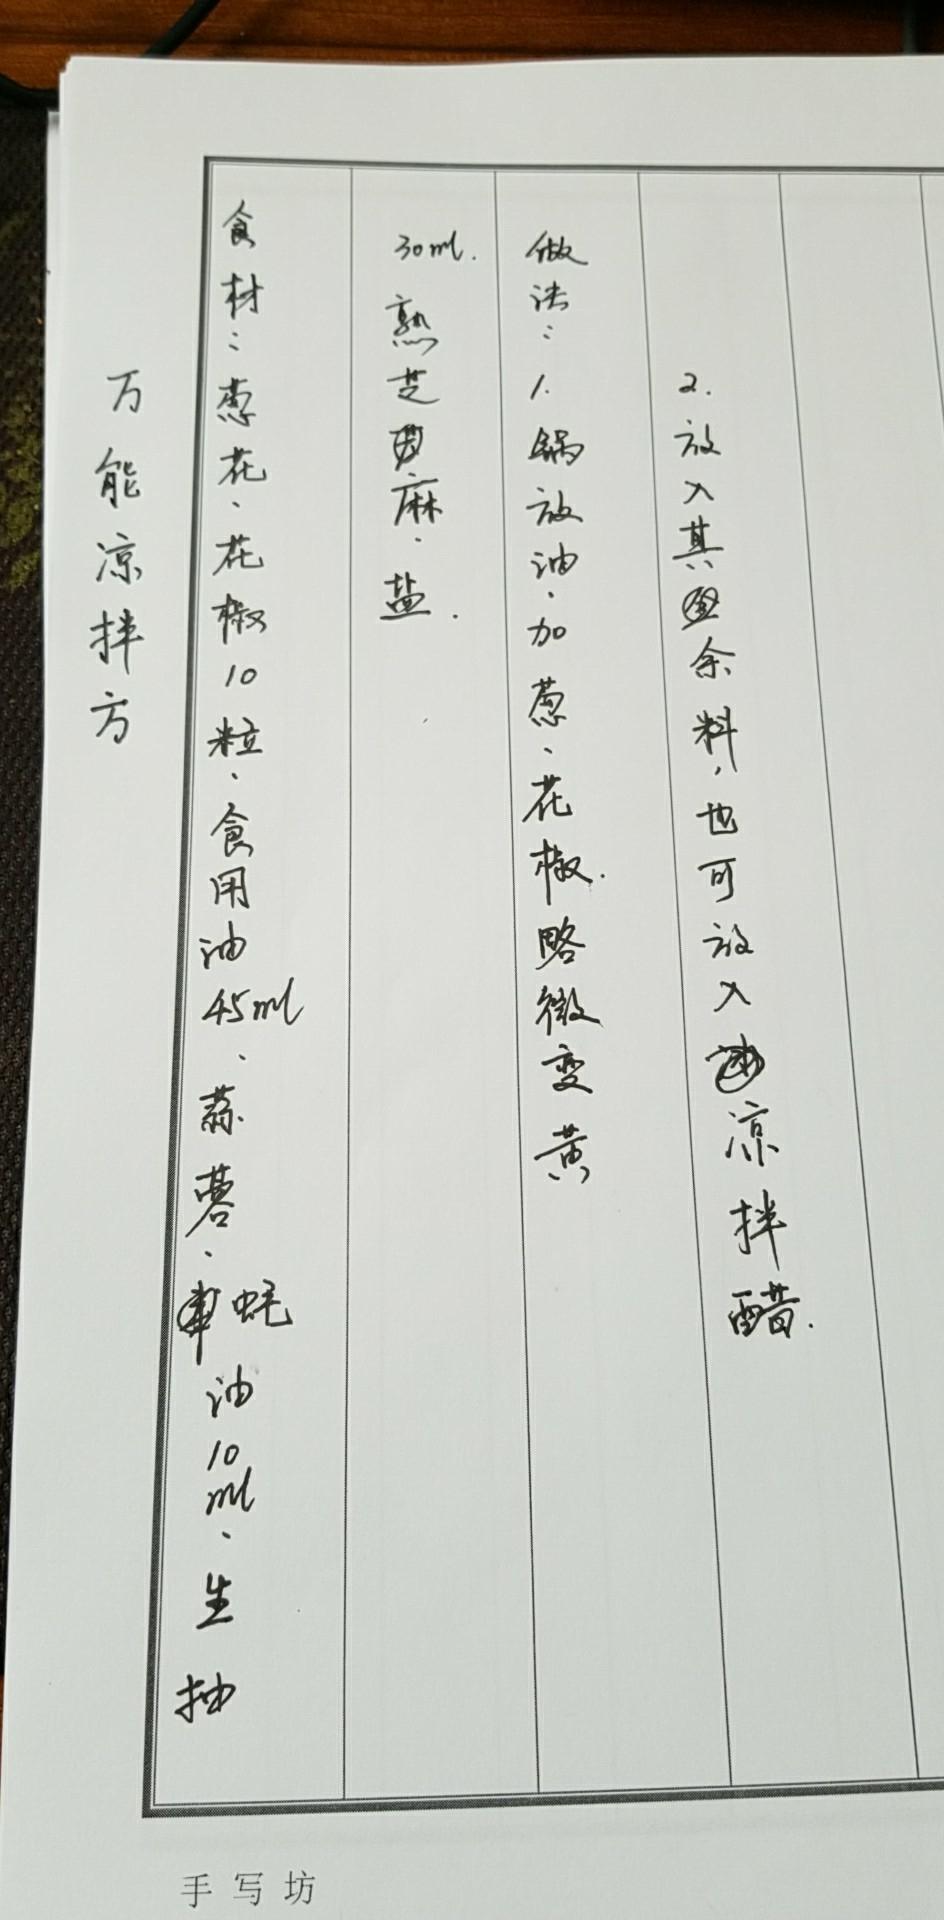 万能凉拌方
食材：葱花、花椒10粒、食用油45ml、蒜蓉、蚝油10ml、生抽
30ml.熟芝麻、盐.
做法：1.锅放油、加葱、花椒.略微变黄
2.放入其余料，也可放入凉拌醋.
手写坊